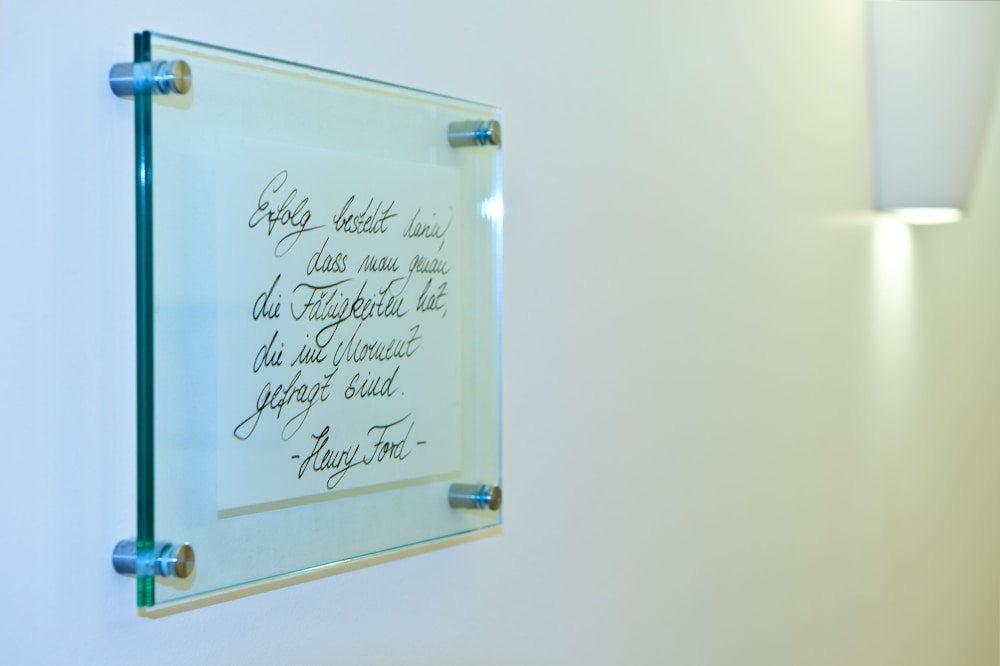 Erfolg besteht darin,
dass man genau
die Fähigkeiten hat,
die im Moment
gefragt sind.
- Henry Ford -